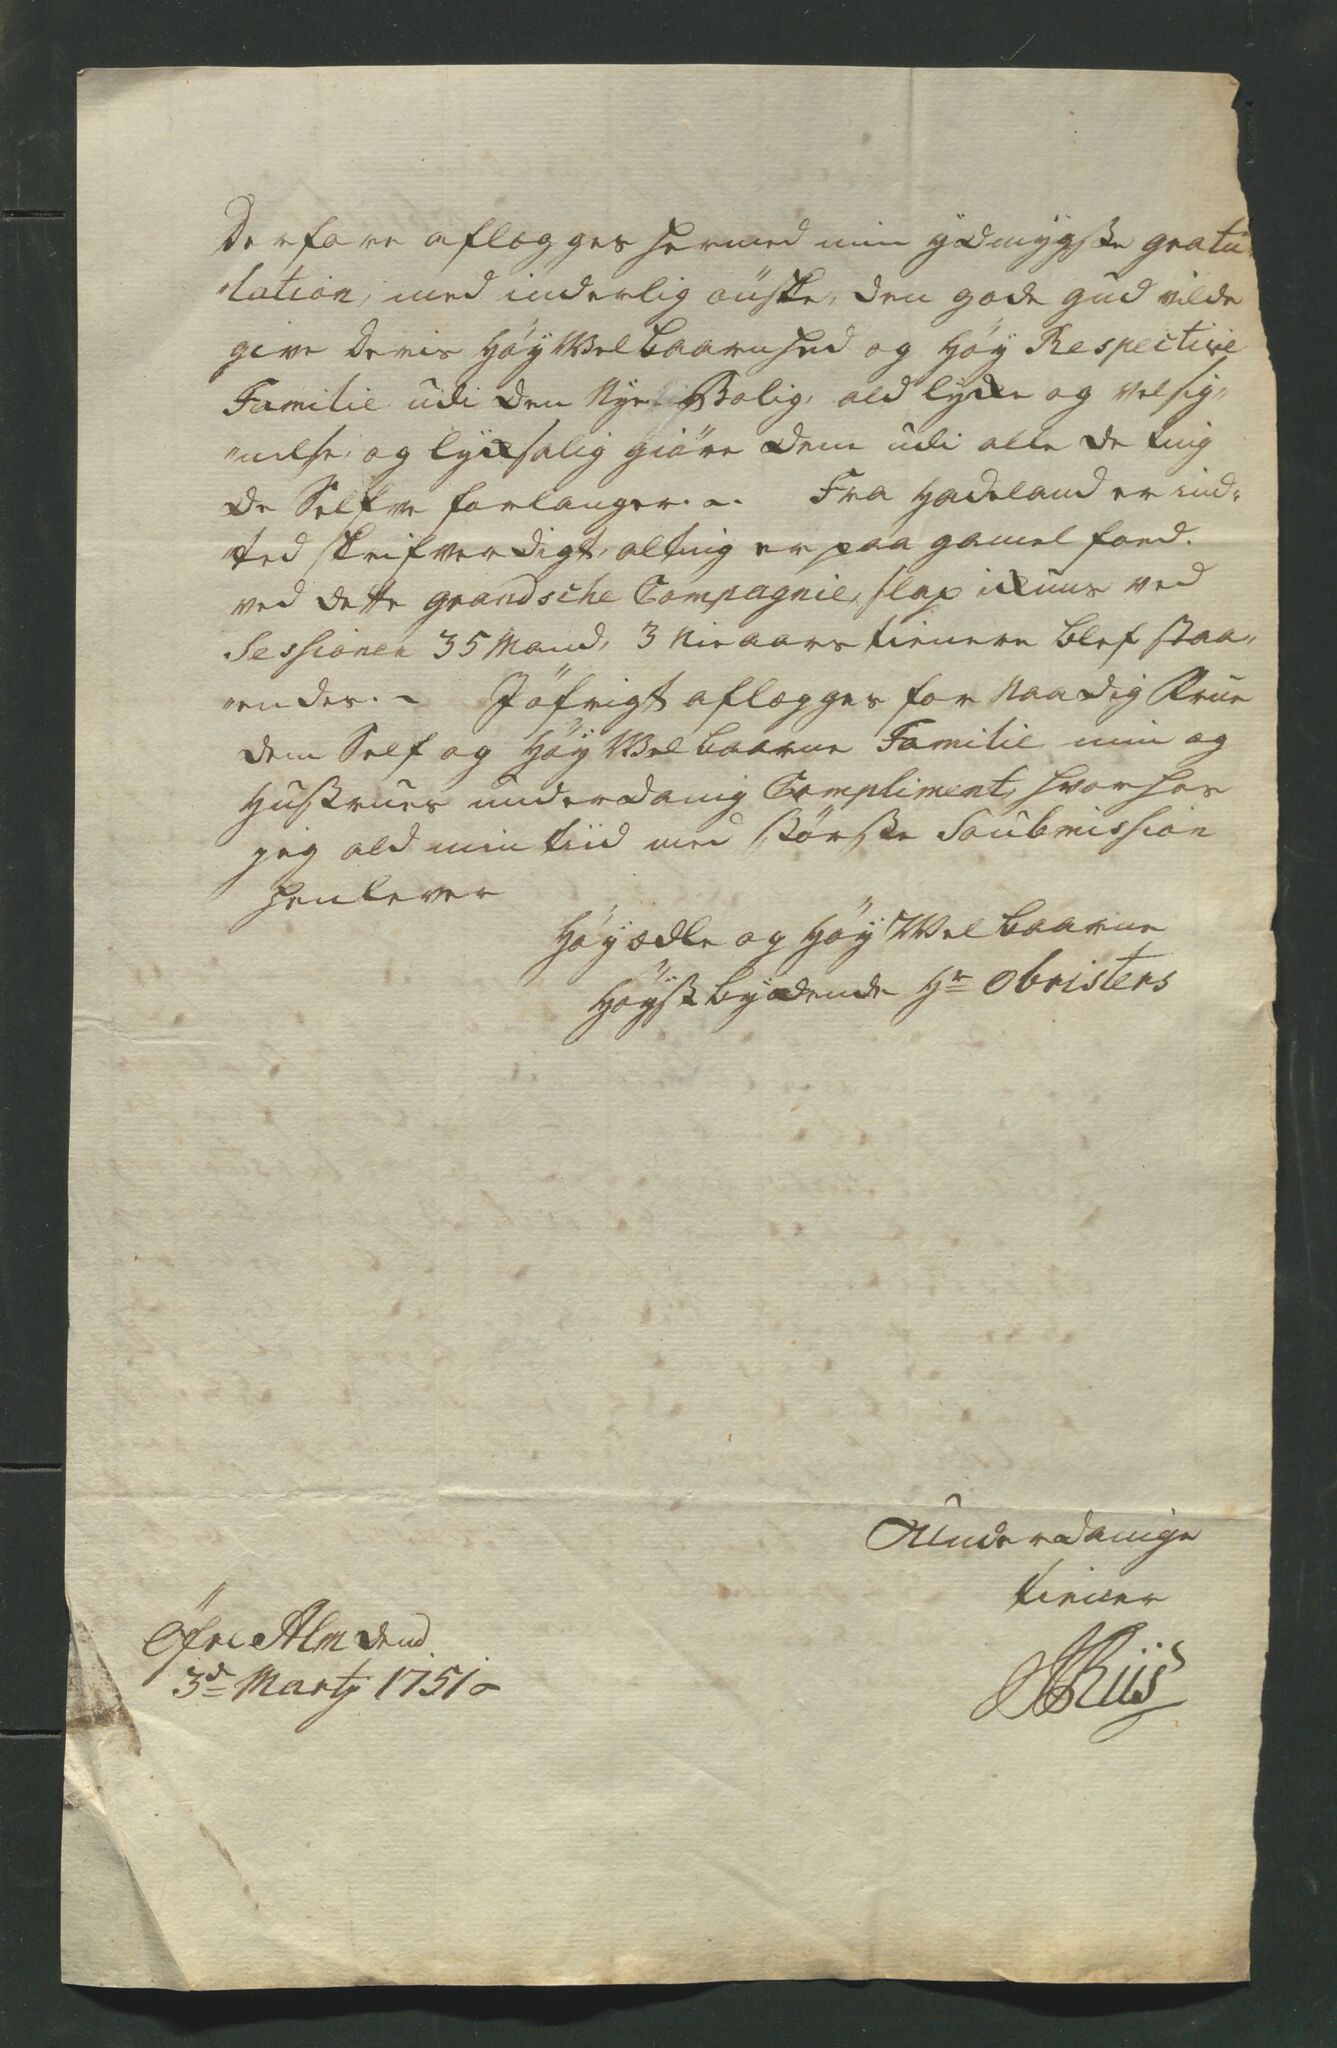 Derfore aflegges hermed min ydmygste gratu,,
,,lation, med inderlig önske, den gode gud vilde
give Deris HöyWelbaarenhed og Höy Respective
Familie udi den Nye Bolig, ald lycke og velsig,,
,,nelse, og lycksalig giöre dem udi alle de ting
de Selfve forlanger. Fra Hadeland er ind,,
,,ted skrifverdigt, alting er paa gamel foed.
ved dette grandsche Compagnie, slap ickuns ved
Sessionen 35 Mand, 3 Nieaars tienere blef staa,,
,,endes. I öfrigt aflegges for Naadig Frue
dem Self og HöyWelbaarne Familie min og
Hustrues underdanig Compliment, hvorhos
jeg ald min tiid med störste Soubmission
henlever
Höyædle og HöyWelbaarne
Höystbydende Hr Obristers
Underdanige
tiener
Riis
Öfre Alm dend
3de Martj 1751